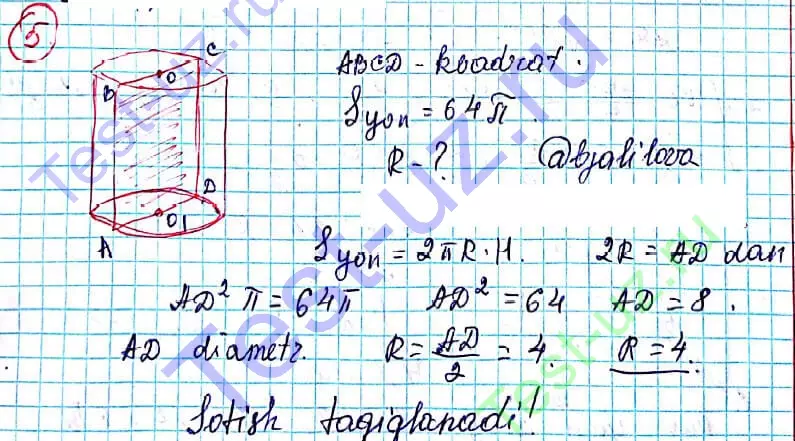 5.
C
O
B
D
O1
A
ABCD - kvadrat.
Syon = 64π.
R - ?
@bjalilova
Syon = 2πR·H. 2R = AD dan
AD² π = 64π AD² = 64 AD = 8.
AD diametr. R = AD/2 = 4. R = 4.
Sotish taqiqlanadi!
Test-uz.ru
Test-uz.ru
Test-uz.ru
Test-uz.ru